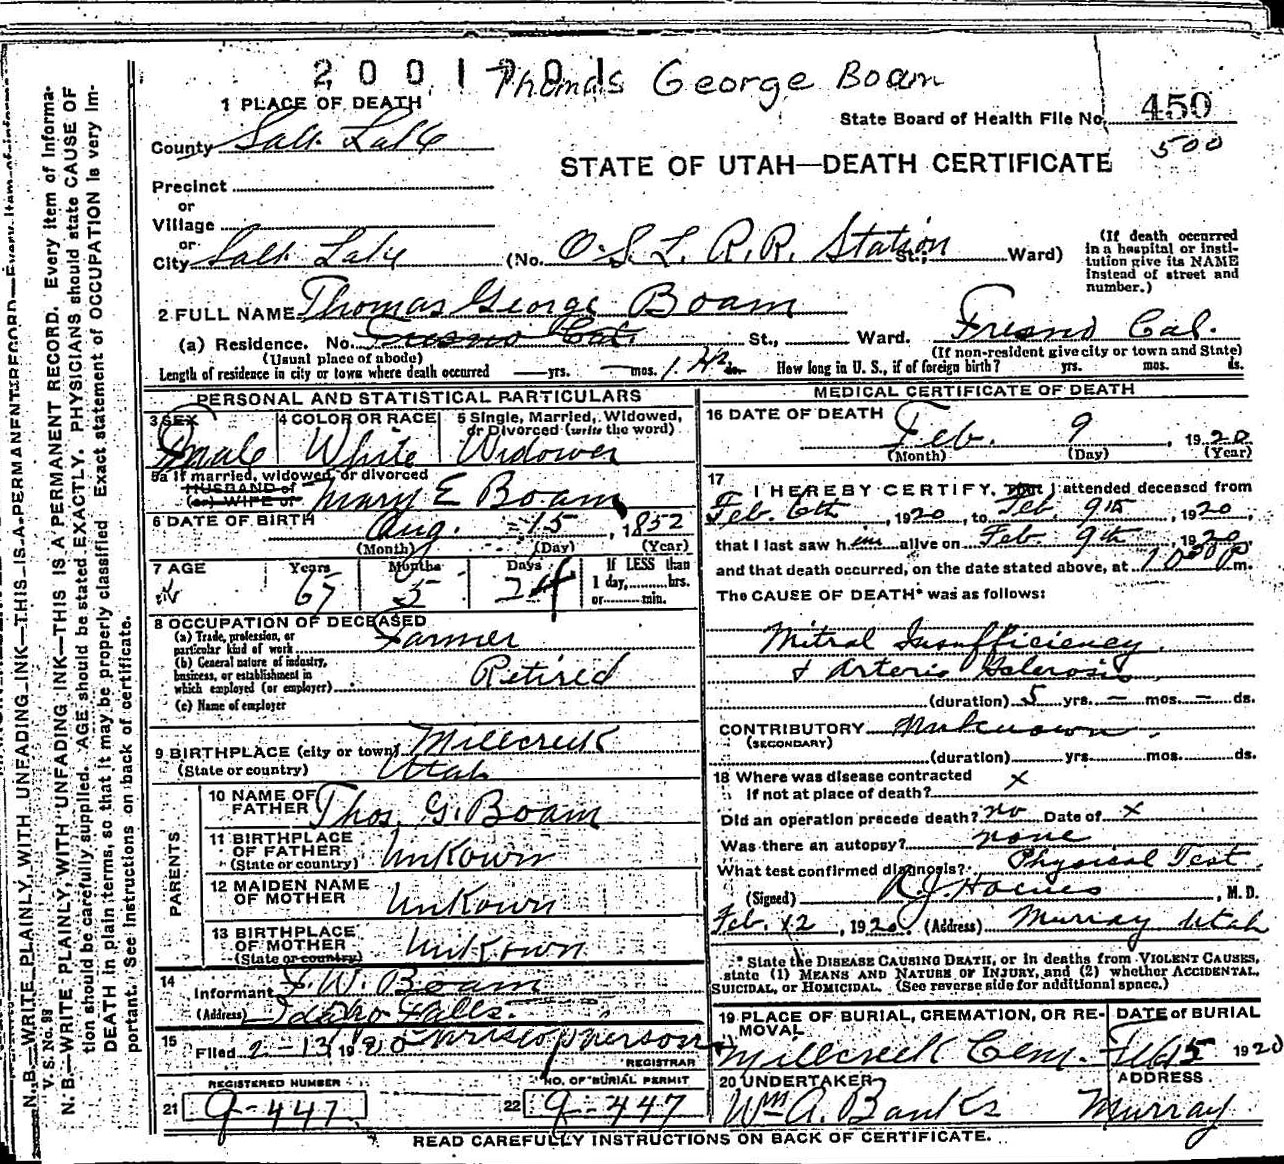 2001701 Thomas George Boam
1 PLACE OF DEATH
State Board of Health File No. 450
500
County Salt Lake
STATE OF UTAH—DEATH CERTIFICATE
Precinct
or
Village
or
City Salt Lake (No. O.S.L. R.R. Station St., Ward)
(If death occurred in a hospital or institution give its NAME instead of street and number.)
2 FULL NAME Thomas George Boam
(a) Residence. No. Fresno Cal. St., Ward. Fresno Cal.
(Usual place of abode) (If non-resident give city or town and State)
Length of residence in city or town where death occurred —yrs. —mos. 1 ds. How long in U. S., if of foreign birth? yrs. mos. ds.
PERSONAL AND STATISTICAL PARTICULARS
3 SEX Male
4 COLOR OR RACE White
5 Single, Married, Widowed, or Divorced (write the word) Widower
5a If married, widowed, or divorced
HUSBAND of
(or) WIFE of Mary E Boam
6 DATE OF BIRTH Aug. 15, 1852
(Month) (Day) (Year)
7 AGE Years 67 Months 5 Days 24 If LESS than 1 day, hrs. or min.
8 OCCUPATION OF DECEASED
(a) Trade, profession, or particular kind of work Farmer
(b) General nature of industry, business, or establishment in which employed (or employer) Retired
(c) Name of employer
9 BIRTHPLACE (city or town) Millcreek
(State or country) Utah
PARENTS
10 NAME OF FATHER Thos. G. Boam
11 BIRTHPLACE OF FATHER (State or country) Unkown
12 MAIDEN NAME OF MOTHER Unkown
13 BIRTHPLACE OF MOTHER (State or country) Unkown
14 Informant W. Boam
(Address) Idaho Falls.
15 Filed 2-13 19
REGISTRAR
REGISTERED NUMBER
21 9-447
NO. OF BURIAL PERMIT
22 9-447
MEDICAL CERTIFICATE OF DEATH
16 DATE OF DEATH Feb. 9, 1920
(Month) (Day) (Year)
17 I HEREBY CERTIFY, That I attended deceased from
Feb. 6th, 1920, to Feb. 9th, 1920,
that I last saw him alive on Feb. 9th, 1920,
and that death occurred, on the date stated above, at m.
The CAUSE OF DEATH* was as follows:
Mitral Insufficiency
& Arterio Sclerosis
(duration) 5 yrs. — mos. — ds.
CONTRIBUTORY Unknown.
(SECONDARY)
(duration) yrs. mos. ds.
18 Where was disease contracted
If not at place of death? x
Did an operation precede death? no Date of x
Was there an autopsy? none
What test confirmed diagnosis? Physical Test
(Signed) M. D.
Feb. 12, 1920 (Address) Murray Utah
* State the DISEASE CAUSING DEATH, or in deaths from VIOLENT CAUSES, state (1) MEANS AND NATURE OF INJURY, and (2) whether ACCIDENTAL, SUICIDAL, or HOMICIDAL. (See reverse side for additional space.)
19 PLACE OF BURIAL, CREMATION, OR REMOVAL
Millcreek Cem.
DATE of BURIAL
Feb 15 1920
20 UNDERTAKER
Wm A. Banks
ADDRESS
Murray
READ CAREFULLY INSTRUCTIONS ON BACK OF CERTIFICATE.
V. S. No. 98
N. B.—WRITE PLAINLY, WITH UNFADING INK—THIS IS A PERMANENT RECORD. Every item of information should be carefully supplied. AGE should be stated EXACTLY. PHYSICIANS should state CAUSE OF DEATH in plain terms, so that it may be properly classified. Exact statement of OCCUPATION is very important. See instructions on back of certificate.
N. B.—WRITE PLAINLY, WITH UNFADING INK—THIS IS A PERMANENT RECORD—Every item of